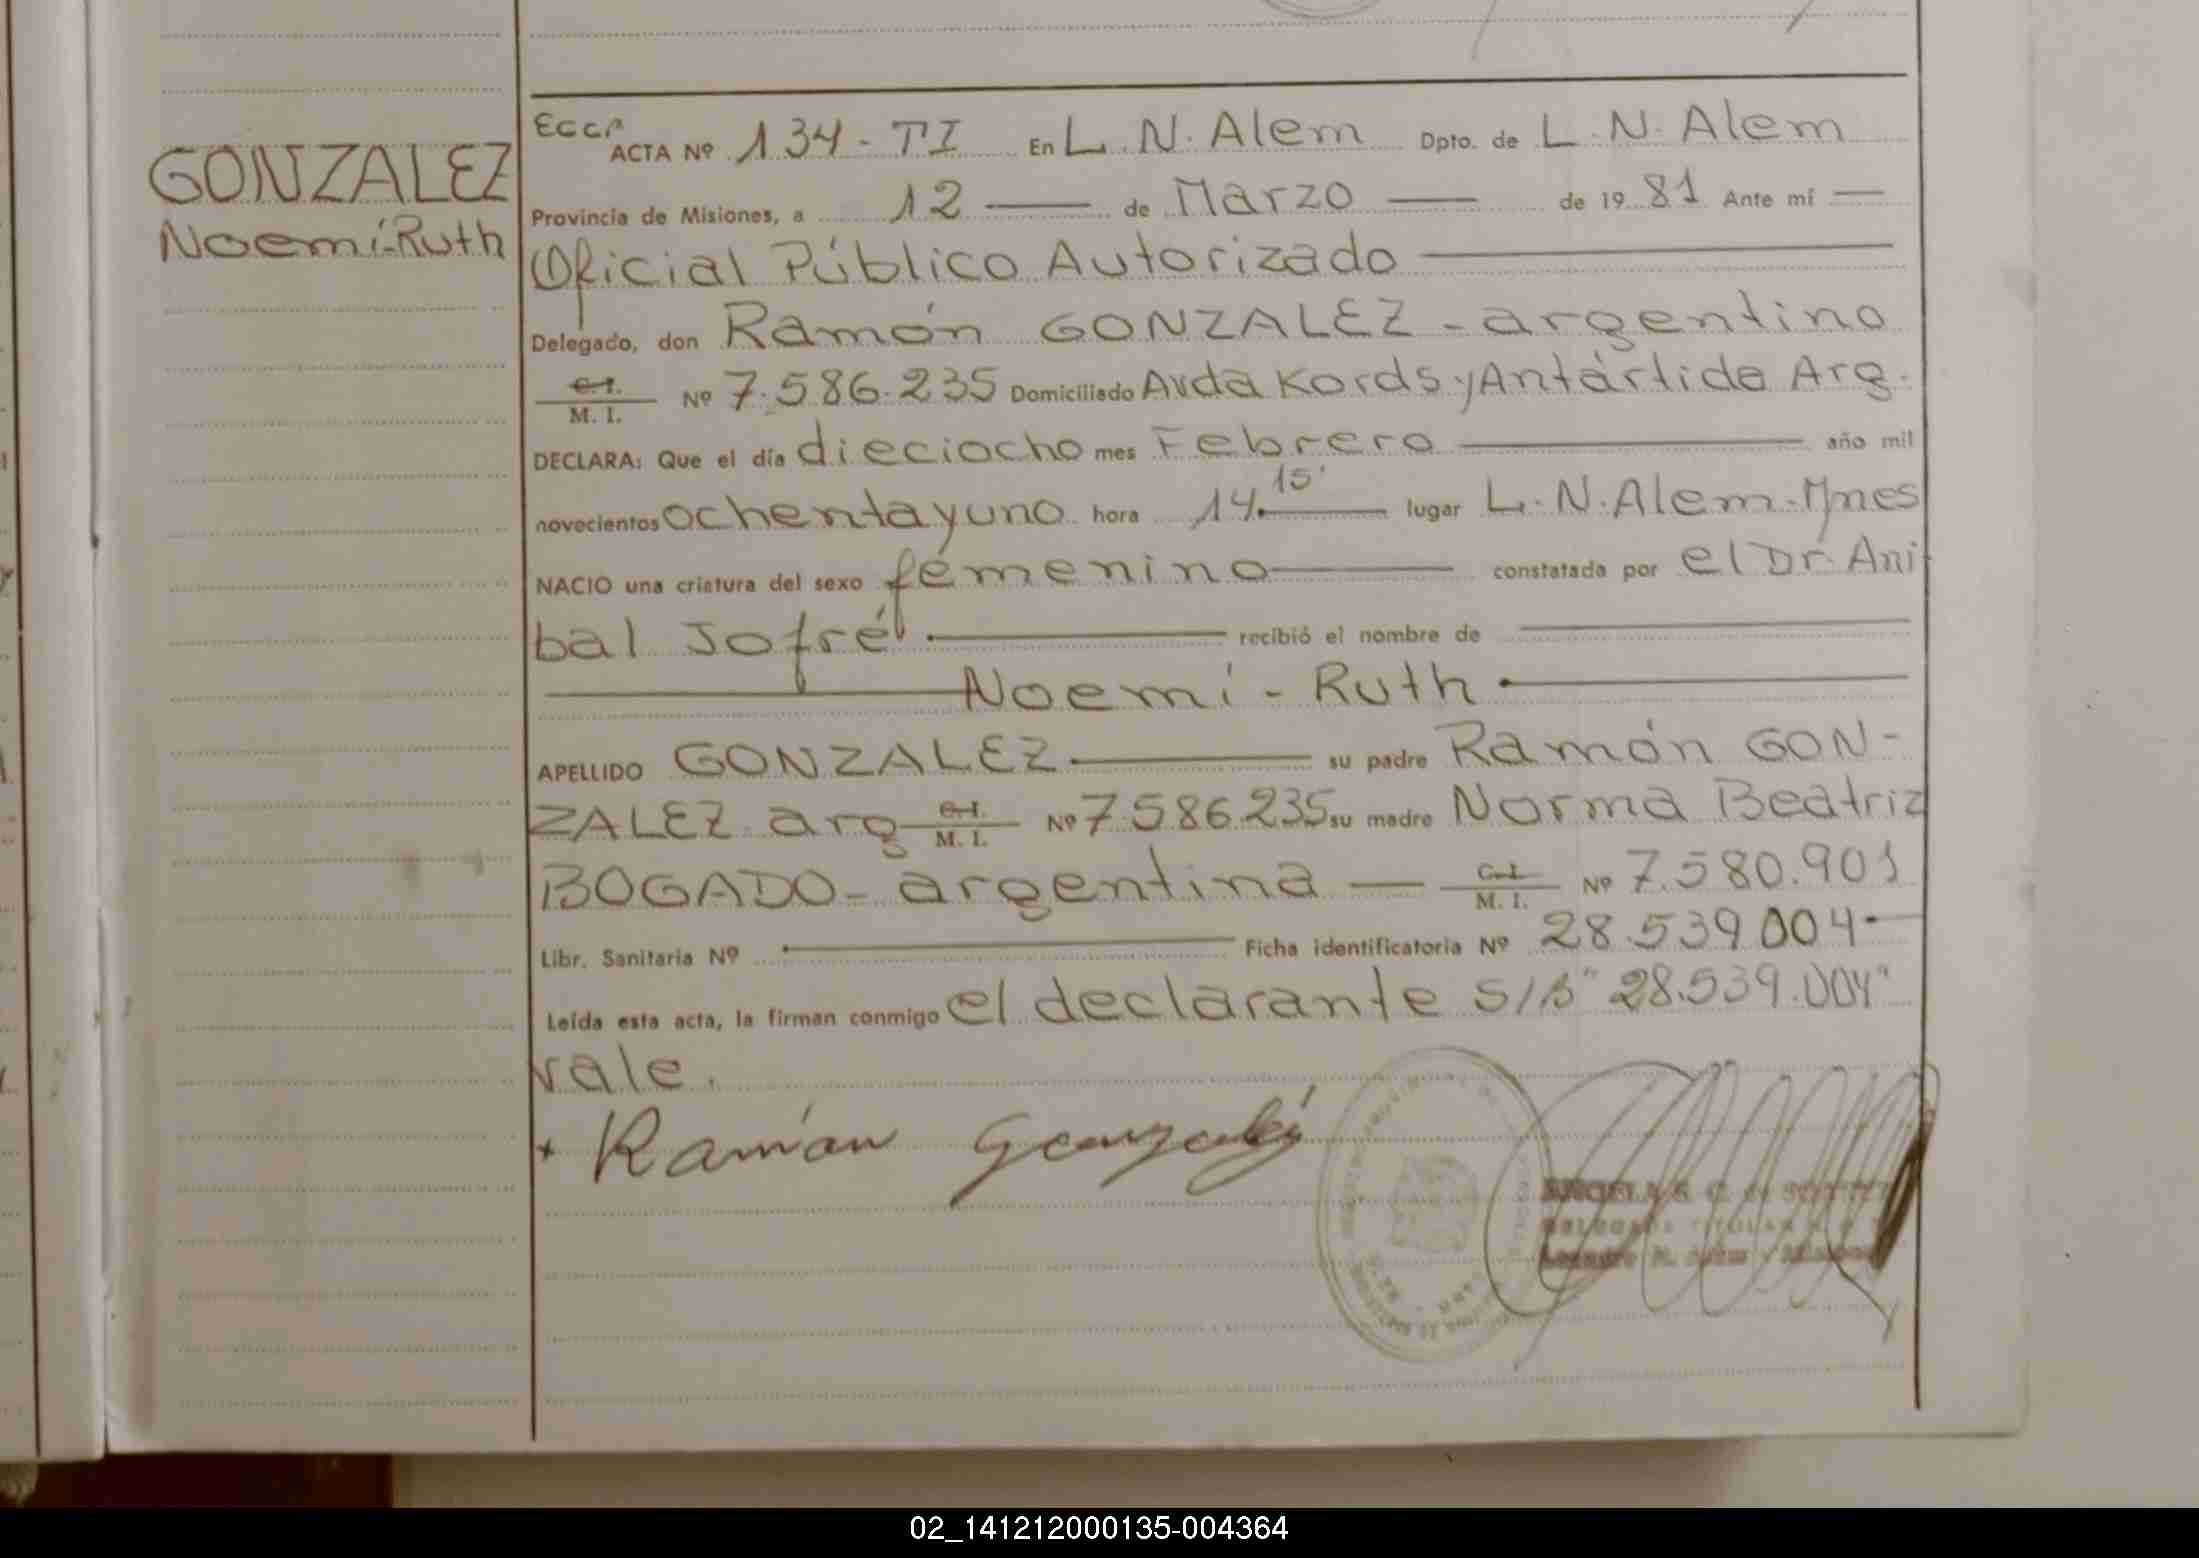 GONZALEZ
Noemí-Ruth
ACTA Nº 134-TI En L. N. Alem Dpto. de L. N. Alem
Provincia de Misiones, a 12 de Marzo de 1981 Ante mí
Oficial Público Autorizado
Delegado, don Ramón GONZALEZ - argentino
C. I.
M. I. Nº 7.586.235 Domiciliado Avda Kords y Antártida Arg.
DECLARA: Que el día dieciocho mes Febrero año mil
novecientos ochentayuno hora 14.15' lugar L. N. Alem - Mnes
NACIO una criatura del sexo femenino constatada por el Dr. Ani
bal Jofré recibió el nombre de
Noemí - Ruth
APELLIDO GONZALEZ su padre Ramón GON-
ZALEZ arg C. I. M. I. Nº 7.586.235 su madre Norma Beatriz
BOGADO - argentina C. I. M. I. Nº 7.580.901
Libr. Sanitaria Nº Ficha identificatoria Nº 28.539.004
Leída esta acta, la firman conmigo el declarante S/B "28.539.004"
vale.
Ramón Gonzalez
02_141212000135-004364